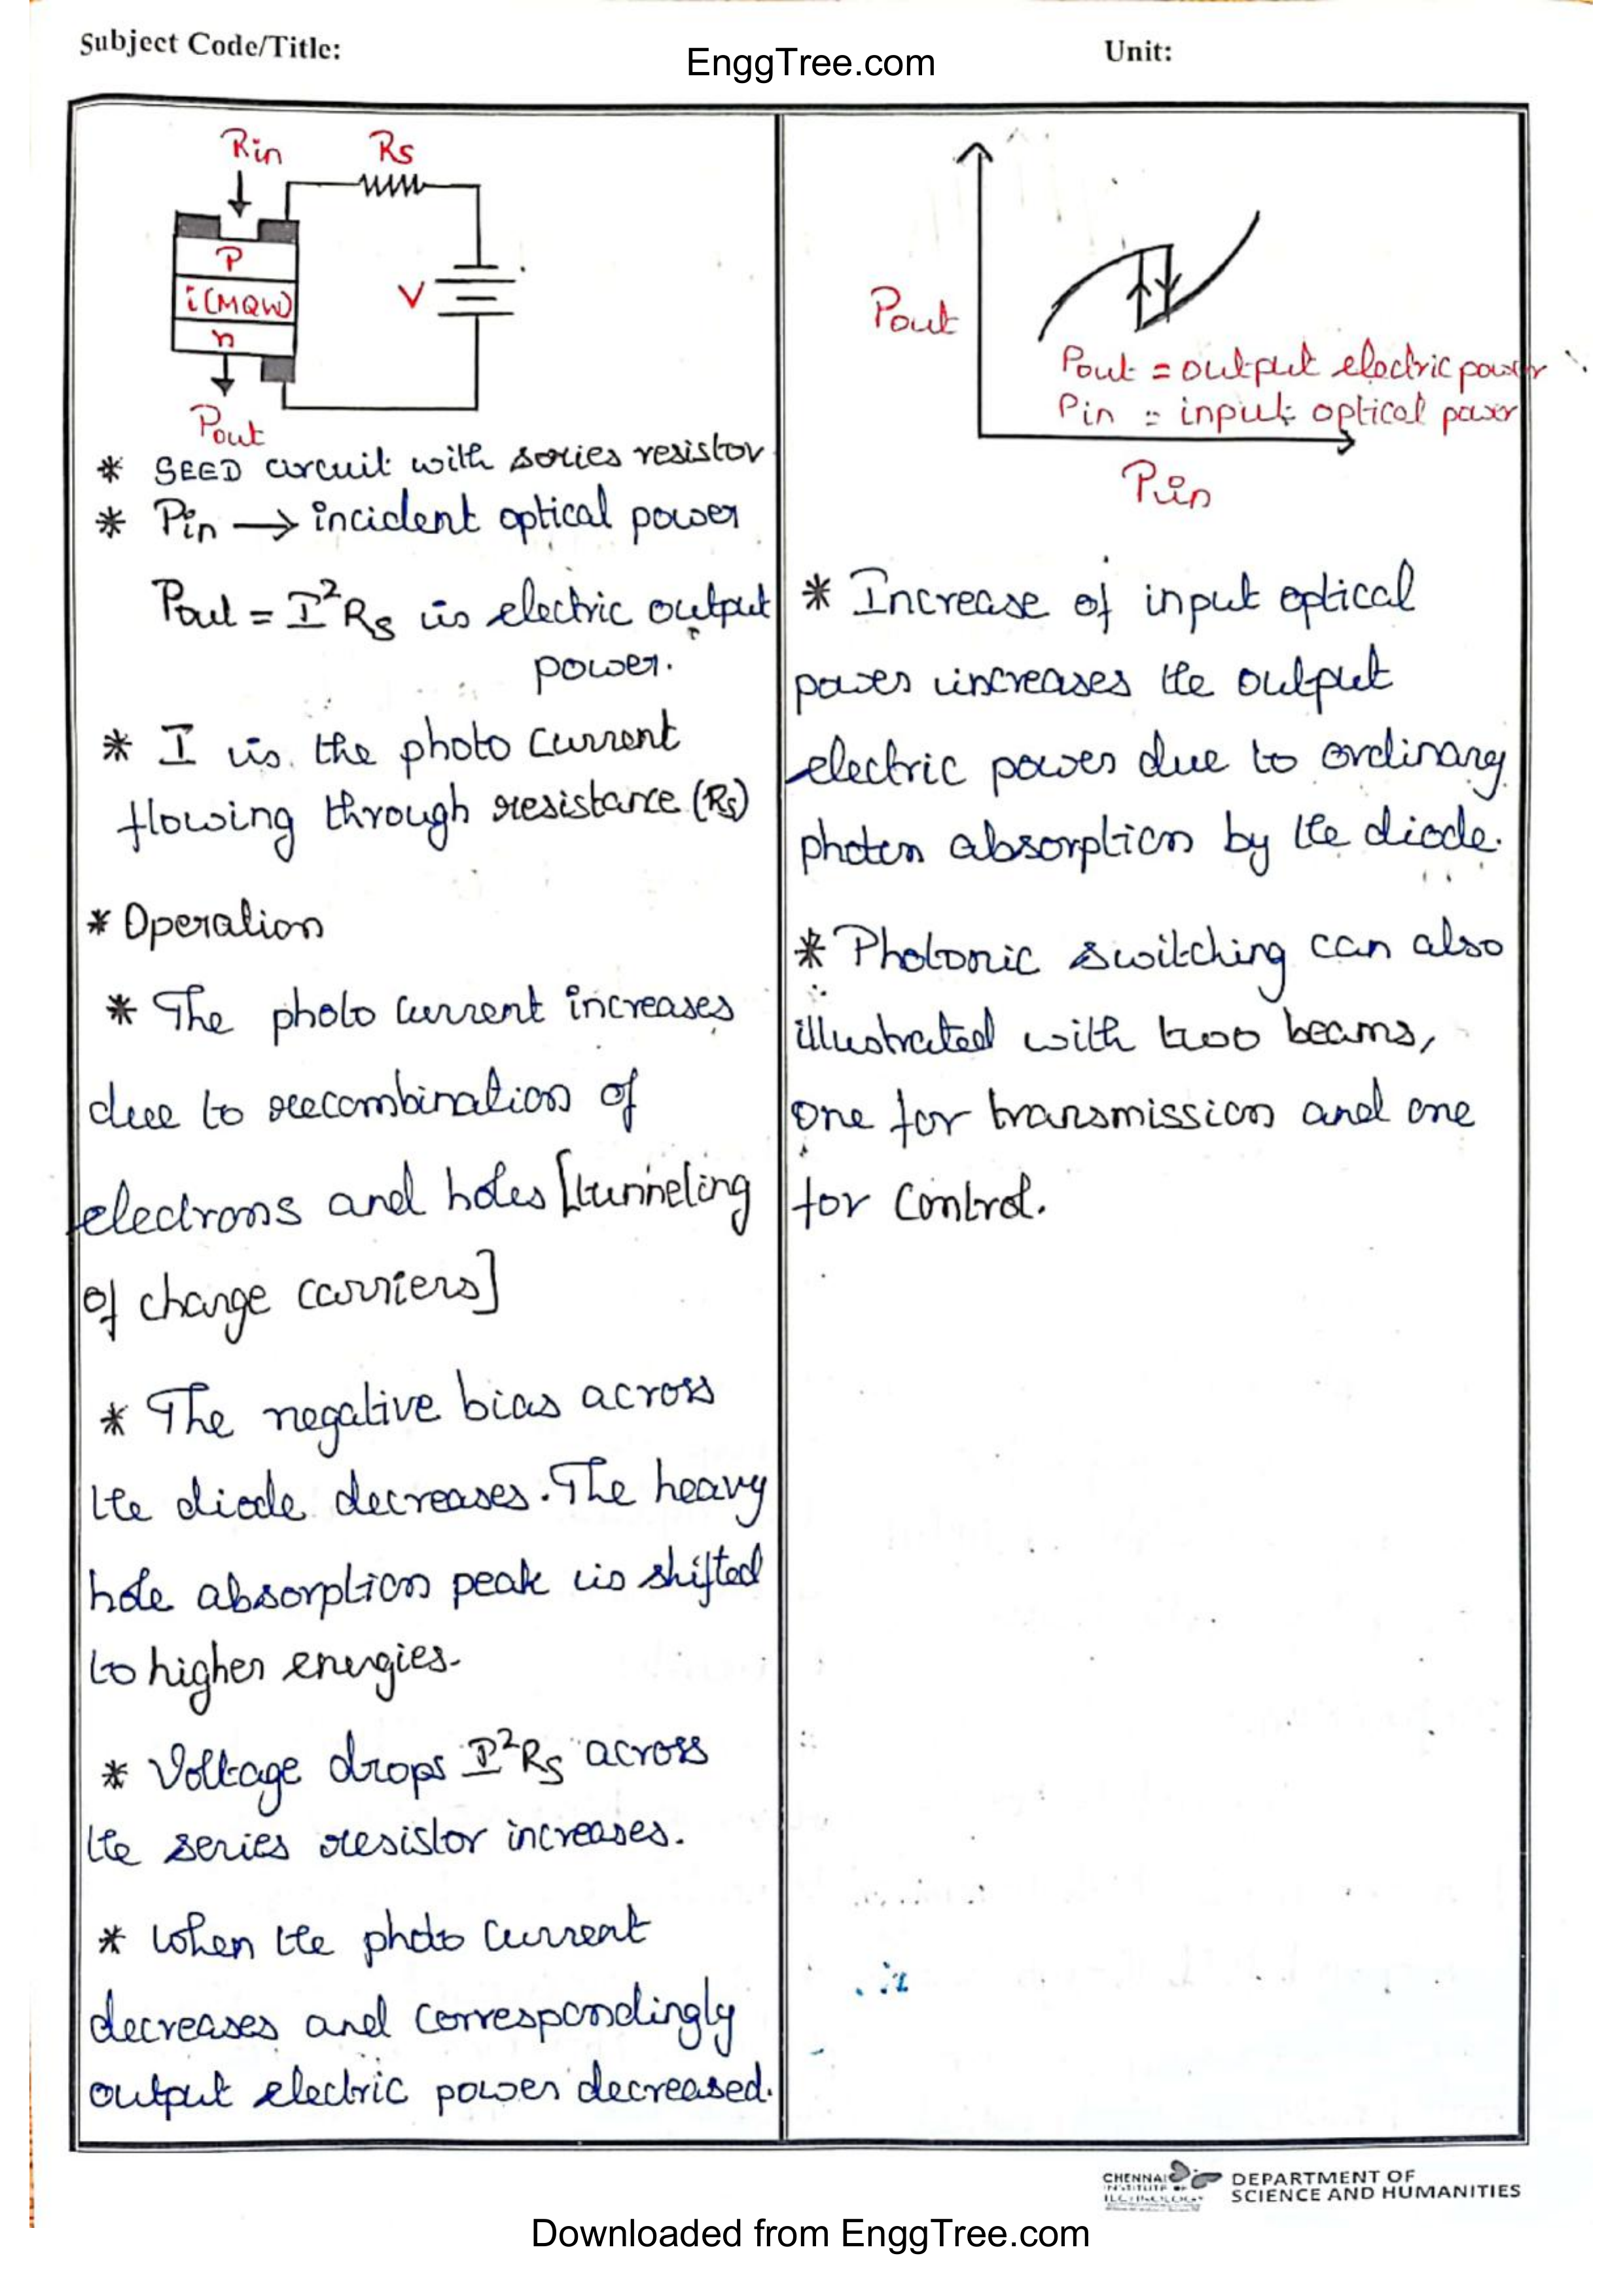 Subject Code/Title:
EnggTree.com
Unit:
Rin
Rs
P
i(MQW)
n
V
Pout
* SEED circuit with series resistor
* Pin → incident optical power
Pout = I²Rs is electric output
power.
* I is the photo current
flowing through resistance (Rs)
* Operation
* The photo current increases
due to recombination of
electrons and holes [tunneling
of charge carriers]
* The negative bias across
the diode decreases. The heavy
hole absorption peak is shifted
to higher energies.
* Voltage drops I²Rs across
the series resistor increases.
* When the photo current
decreases and correspondingly
output electric power decreased.
Pout
Pout = output electric power
Pin = input optical power
Pin
* Increase of input optical
power increases the output
electric power due to ordinary
photon absorption by the diode.
* Photonic switching can also
illustrated with two beams,
one for transmission and one
for control.
CHENNAI
INSTITUTE OF
TECHNOLOGY
DEPARTMENT OF
SCIENCE AND HUMANITIES
Downloaded from EnggTree.com